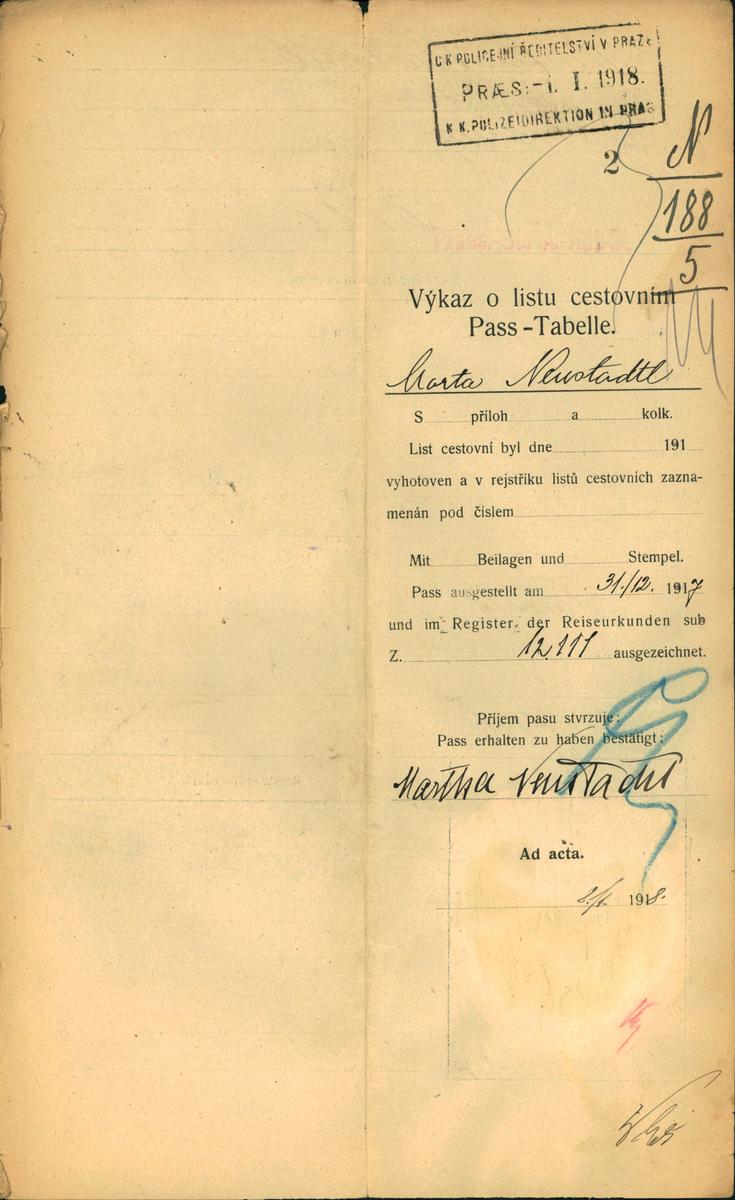 C.K POLICEJNÍ ŘEDITELSTVÍ V PRAZE
PRÆS:-1. I. 1918.
K.K.POLIZEIDIREKTION IN PRAG
2
N
188
5
Výkaz o listu cestovním
Pass-Tabelle.
Marta Neustadtl
S příloh a kolk.
List cestovní byl dne 191
vyhotoven a v rejstříku listů cestovních zazna-
menán pod číslem
Mit Beilagen und Stempel.
Pass ausgestellt am 31./12. 1917
und im Register der Reiseurkunden sub
Z. 12.111 ausgezeichnet.
Příjem pasu stvrzuje:
Pass erhalten zu haben bestätigt:
Martha Neustadtl
Ad acta.
2./1. 1918.